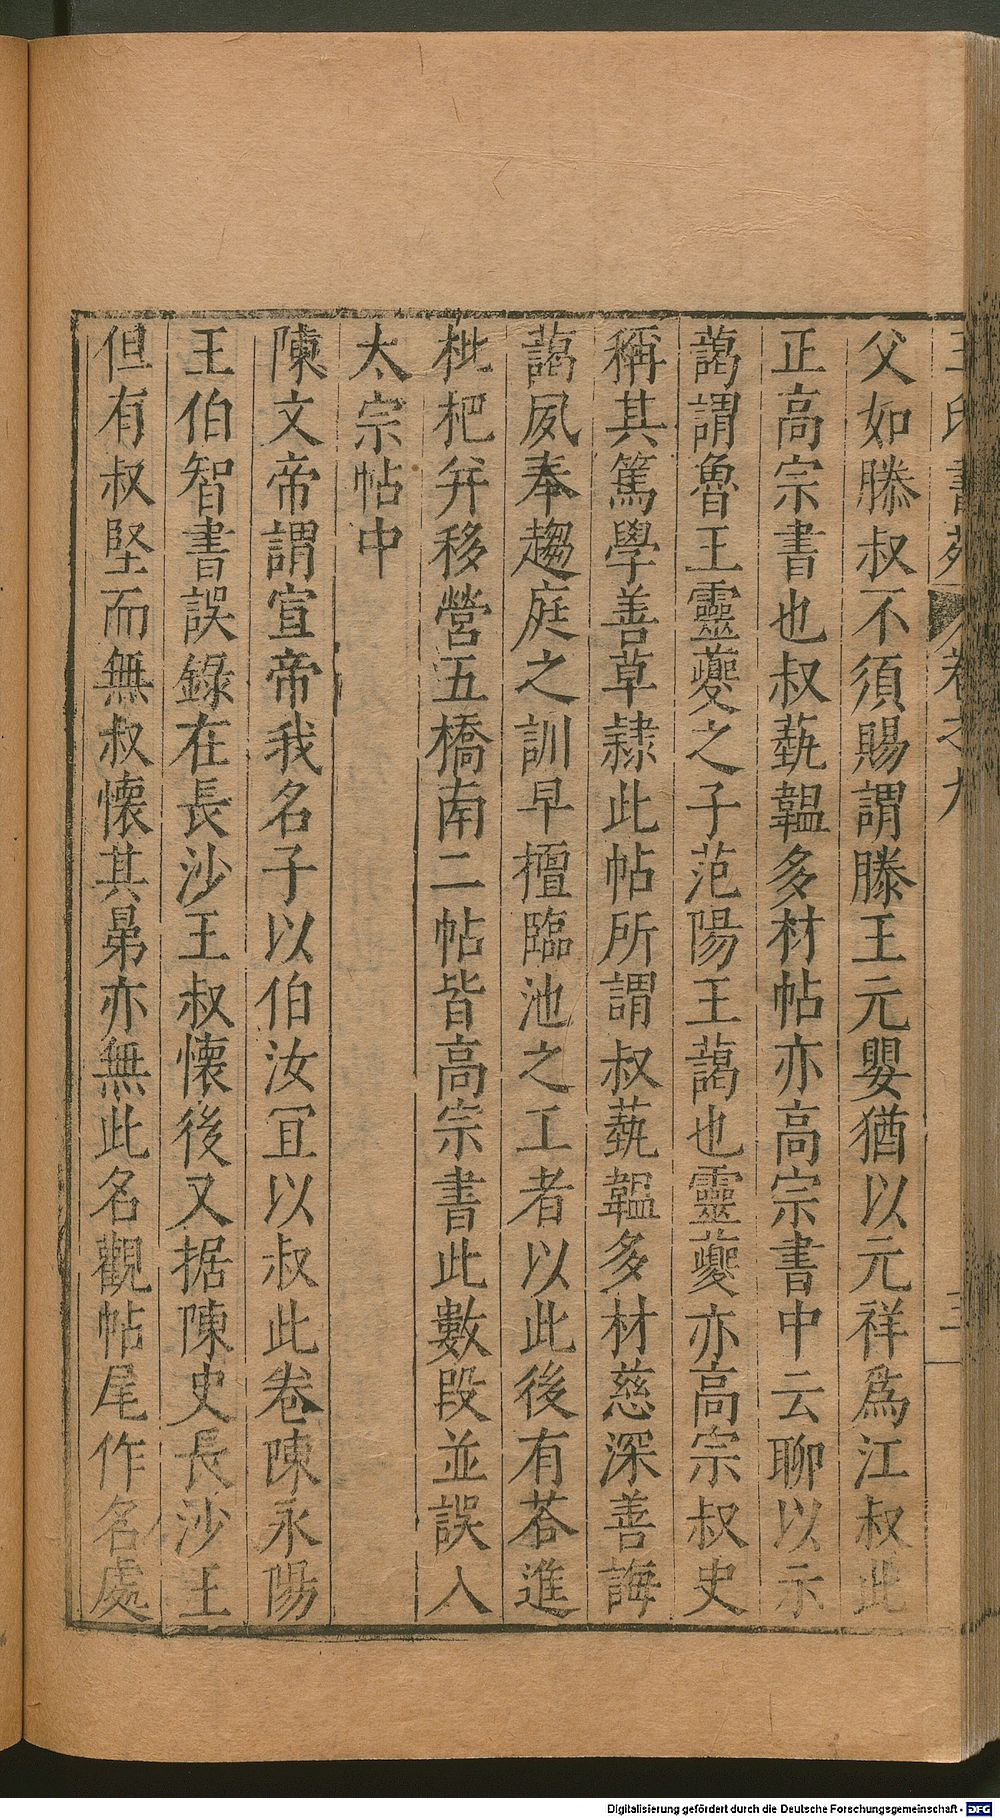 王氏書苑 卷之九 三
父如滕叔不須賜謂滕王元嬰猶以元祥爲江叔此
正高宗書也叔藝韞多材帖亦高宗書中云聊以示
藹謂魯王靈夔之子范陽王藹也靈夔亦高宗叔史
稱其篤學善草隷此帖所謂叔藝韞多材慈深善誨
藹夙奉趨庭之訓早擅臨池之工者以此後有荅進
枇杷并移營五橋南二帖皆高宗書此數段並誤入
太宗帖中
陳文帝謂宣帝我名子以伯汝冝以叔此卷陳永陽
王伯智書誤錄在長沙王叔懷後又据陳史長沙王
但有叔堅而無叔懷其㬎亦無此名觀帖尾作名處
Digitalisierung gefördert durch die Deutsche Forschungsgemeinschaft - DFG